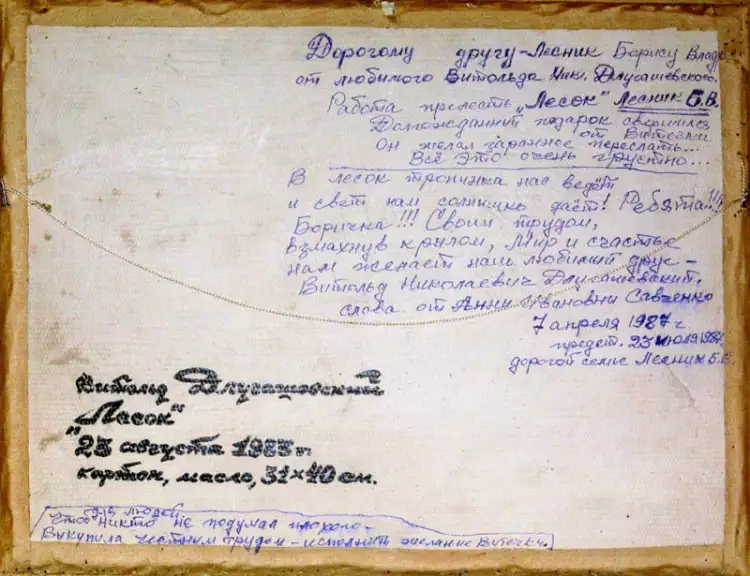 Дорогому другу-Лесник Борису Влад
от любимого Витольда Ник. Длугашевского.
Работа прелесть „Лесок" Лесник Б.В.
Долгожданный подарок свершился
от Витечки
Он желал заранее переслать...
Всё это очень грустно...
В лесок тропинка нас ведёт
и свет нам солнышко даёт! Ребята!!!
Боричка!!! Своим трудом,
взмахнув крылом, Мир и счастье
нам желает наш любимый друг -
Витольд Николаевич Длугашевский,
слова от Анны Ивановны Савченко
7 апреля 1987 г
23 июля 1987
дорогой семье Лесник Б.В.
Витольд Длугашевский
„Лесок"
23 августа 1983 г.
картон, масло, 31×40 см.
для людей.
чтоб никто не подумал плохого-
Выкупила честным трудом-исполнить желание Витечки.